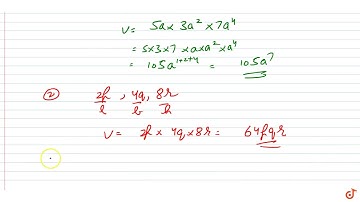 V = 5a × 3a² × 7a⁴
= 5×3×7 × a×a²×a⁴
= 105a¹⁺²⁺⁴ = 105a⁷
② 2p, 4q, 8r
l b h
V = 2p × 4q × 8r = 64pqr